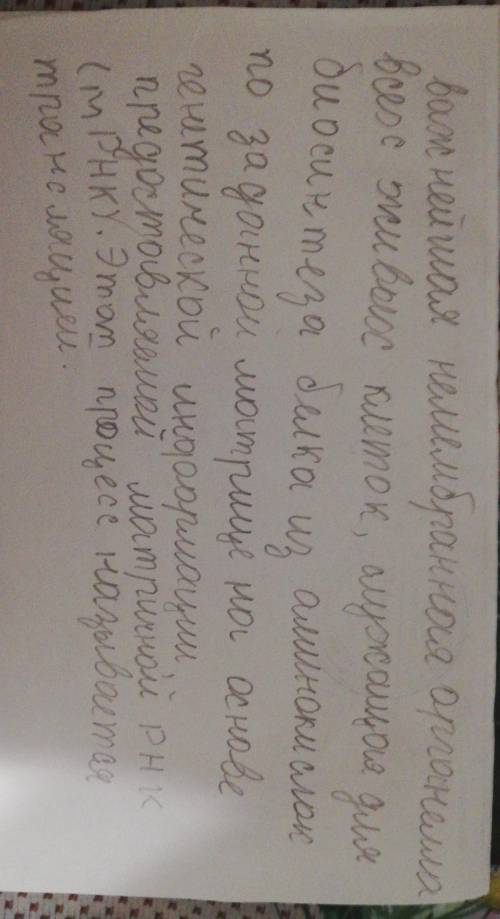 важнейшая немембранная органелла
всех живых клеток, служащая для
биосинтеза белка из аминокислот
по заданной матрице на основе
генетической информации
предоставляемой матричной РНК
(мРНК). Этот процесс называется
трансляцией.